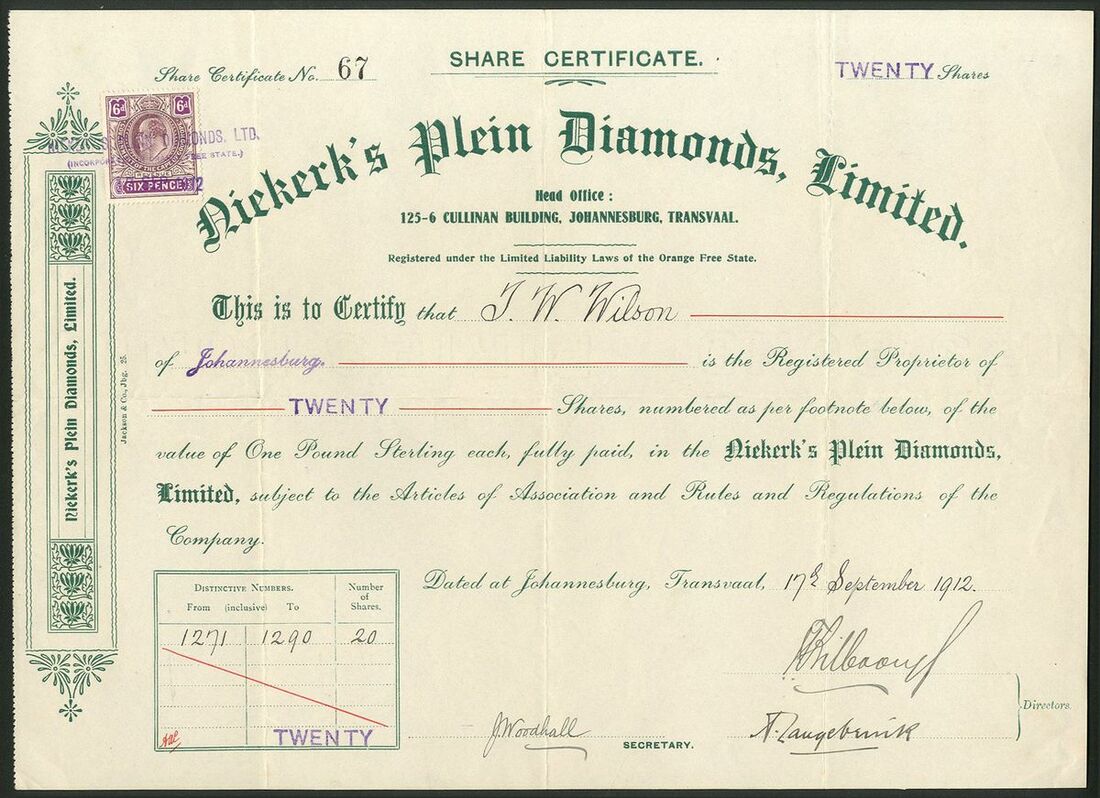 Share Certificate No. 67
SHARE CERTIFICATE.
TWENTY Shares
6d 6d
REVENUE
SIX PENCE
ONDS, LTD.
(INCORPOR FREE STATE.)
Niekerk's Plein Diamonds, Limited.
Head Office :
125-6 CULLINAN BUILDING, JOHANNESBURG, TRANSVAAL.
Registered under the Limited Liability Laws of the Orange Free State.
This is to Certify that J. W. Wilson
of Johannesburg. is the Registered Proprietor of
TWENTY Shares, numbered as per footnote below, of the
value of One Pound Sterling each, fully paid, in the Niekerk's Plein Diamonds,
Limited, subject to the Articles of Association and Rules and Regulations of the
Company.
Dated at Johannesburg, Transvaal, 17th September 1912.
Distinctive Numbers. Number of Shares.
From (inclusive) To
1271 1290 20
TWENTY
J. Woodhall
SECRETARY.
Directors.
Niekerk's Plein Diamonds, Limited.
Jackson & Co., Jbg. 25.